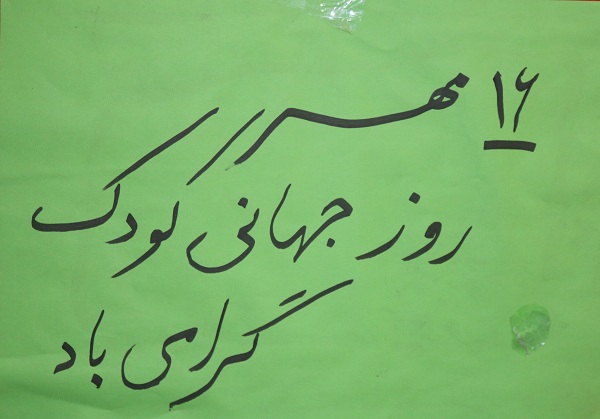 ۱۶ مهر
روز جهانی کودک
گرامی باد